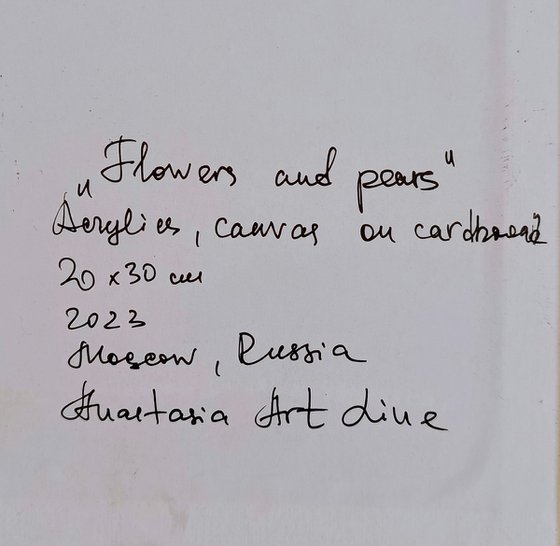 "Flowers and pears"
Acrylics, canvas on cardboard
20 x 30 cm
2023
Moscow, Russia
Anastasia Art Line